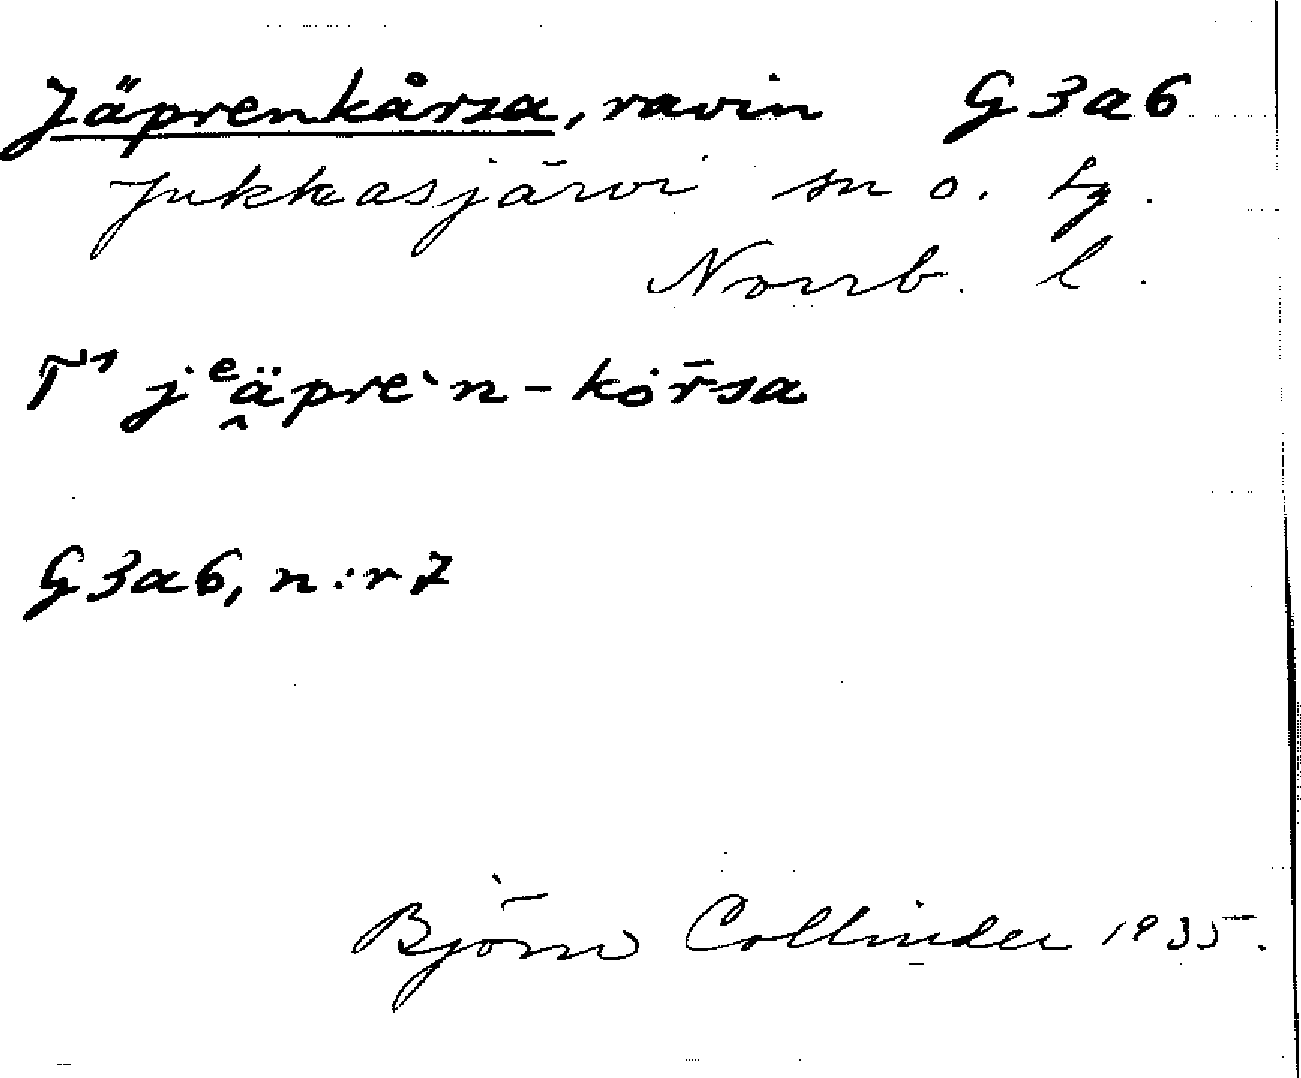 Jäprenkårsa, ravin G3a6
Jukkasjärvi sn o. tg.
Norrb. l.
jᵉä̭preˋn-kȯr̄sa
G3a6, n:r 7
Björn Collinder 1935.